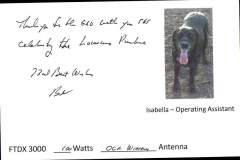 Thank you for the QSO with you for
celebrating the Louisiana Purchase
73 and Best Wishes
Isabella – Operating Assistant
FTDX 3000 100 Watts OCF Windom Antenna